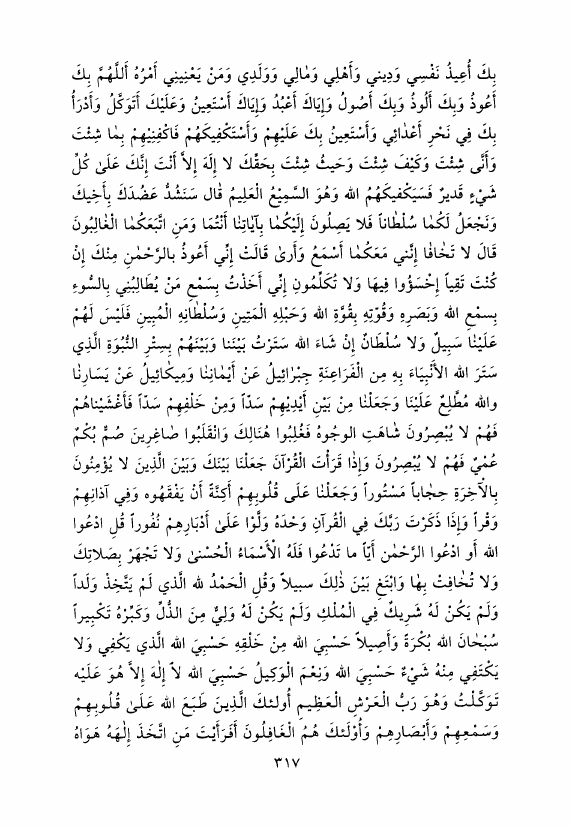 بِكَ أُعِيذُ نَفْسِي وَدِيني وَأَهْلِي وَمٰالِي وَوَلَدِي وَمَنْ يَعْنِينِي أَمْرُهُ أَللَّهُمَّ بِكَ
أَعُوذُ وَبِكَ أَلُوذُ وَبِكَ أَصُولُ وَإِيَّاكَ أَعْبُدُ وَإِيَّاكَ أَسْتَعِينُ وَعَلَيْكَ أَتَوَكَّلُ وَأَدْرَأُ
بِكَ فِي نَحْرِ أَعْدٰائِي وَأَسْتَعِينُ بِكَ عَلَيْهِمْ وَأَسْتَكْفِيكَهُمْ فَاكْفِنِيْهِمْ بِمٰا شِئْتَ
وَأَنَّى شِئْتَ وَكَيْفَ شِئْتَ وَحَيثُ شِئْتَ بِحَقِّكَ لا إِلَهَ إِلاَّ أَنْتَ إِنَّكَ عَلَىٰ كُلِّ
شَيْءٍ قَديرٌ فَسَيَكْفيكَهُمُ الله وَهُوَ السَّمِيْعُ الْعَلِيمُ قٰال سَنَشُدُّ عَضُدَكَ بِأَخِيكَ
وَنَجْعَلُ لَكُمٰا سُلْطٰاناً فَلا يَصِلُونَ إِلَيْكُمٰا بِآيٰاتِنٰا أَنْتُمٰا وَمَنِ اتَّبَعَكُمٰا الْغٰالِبُونَ
قٰالَ لا تَخٰافٰا إِنَّني مَعَكُمٰا أَسْمَعُ وَأَرىٰ قٰالَتْ إِنِّي أَعُوذُ بِالرَّحْمٰنِ مِنْكَ إِنْ
كُنْتَ تَقِياً إِخْسَؤُوا فِيهَا وَلا تُكَلِّمُونِ إِنِّي أَخَذْتُ بِسَمْعِ مَنْ يُطٰالِبُنِي بِالسُّوءِ
بِسِمْعِ الله وَبَصَرِهِ وَقُوَّتِهِ بِقُوَّةِ الله وَحَبْلِهِ الْمَتِينِ وَسُلْطٰانِهِ الْمُبِينِ فَلَيْسَ لَهُمْ
عَلَيْنٰا سَبِيلٌ وَلا سُلْطٰانٌ إِنْ شَاءَ الله سَتَرْتُ بَيْنَنا وَبَيْنَهُمْ بِسِتْرِ النُّبُوَةِ الَّذِي
سَتَرَ الله الأَنْبِيَاءَ بِهِ مِن الْفَرَاعِنَةِ جِبْرٰائِيلُ عَنْ أَيْمٰانِنٰا وَمِيكٰائِيلُ عَنْ يَسارِنٰا
والله مُطَّلِعٌ عَلَيْنَا وَجَعَلْنٰا مِنْ بَيْنِ أَيْدِيْهِمْ سَدّاً وَمِنْ خَلْفِهِمْ سَدّاً فَأَغْشَيْناهُمْ
فَهُمْ لا يُبْصِرُونَ شٰاهَتِ الوجُوهُ فَغُلِبُوا هُنَالِكَ وَانْقَلَبُوا صٰاغِرِينَ صُمٌّ بُكْمٌ
عُمْيٌ فَهُمْ لا يُبْصِرُونَ وَإِذٰا قَرَأْتَ الْقُرْآنَ جَعَلْنٰا بَيْنَكَ وَبَيْنَ الَّذِينَ لا يُؤْمِنُونَ
بِالْآخِرَةِ حِجٰاباً مَسْتُوراً وَجَعَلْنٰا عَلَى قُلُوبِهِمْ أَكِنَّةً أَنْ يَفْقَهُوه وَفِي آذانِهِمْ
وَقْراً وَإِذٰا ذَكَرْتَ رَبَّكَ فِي الْقُرآنِ وَحْدَهُ وَلَّوْا عَلىٰ أَدْبَارِهِمْ نُفُوراً قُلِ ادْعُوا
الله أَو ادْعُوا الرَّحْمٰن أَيّاً ما تَدْعُوا فَلَهُ الْأَسْمٰاءُ الْحُسْنىٰ وَلا تَجْهَرْ بِصَلاتِكَ
وَلا تُخٰافِتْ بِهٰا وَابْتَغِ بَيْنَ ذٰلِكَ سبيلاً وَقُلِ الْحَمْدُ لله الَّذي لَمْ يَتَّخِذْ وَلَداً
وَلَمْ يَكُنْ لَهُ شَرِيكٌ فِي الْمُلْكِ وَلَمْ يَكُنْ لَهُ وَلِيٌّ مِنَ الذُّلِّ وَكَبِّرْهُ تَكْبِيراً
سُبْحَانَ الله بُكْرَةً وَأَصِيلاً حَسْبِيَ الله مِنْ خَلْقِهِ حَسْبِيَ الله الَّذي يَكْفِي وَلا
يَكْتَفِي مِنْهُ شَيْءٌ حَسْبِيَ الله وَنِعْمَ الْوَكِيلُ حَسْبِيَ الله لاٰ إِلٰهَ إِلاَّ هُوَ عَلَيْه
تَوَكَّلْتُ وَهُوَ رَبُّ الْعَرْشِ الْعَظِيمِ أُولئكَ الَّذِينَ طَبَعَ الله عَلَىٰ قُلُوبِهِمْ
وَسَمْعِهِمْ وَأَبْصَارِهِمْ وَأُوْلَئكَ هُمُ الْغَافِلُونَ أَفَرَأَيْتَ مَنِ اتَّخَذَ إِلٰهَهُ هَوَاهُ
٣١٧